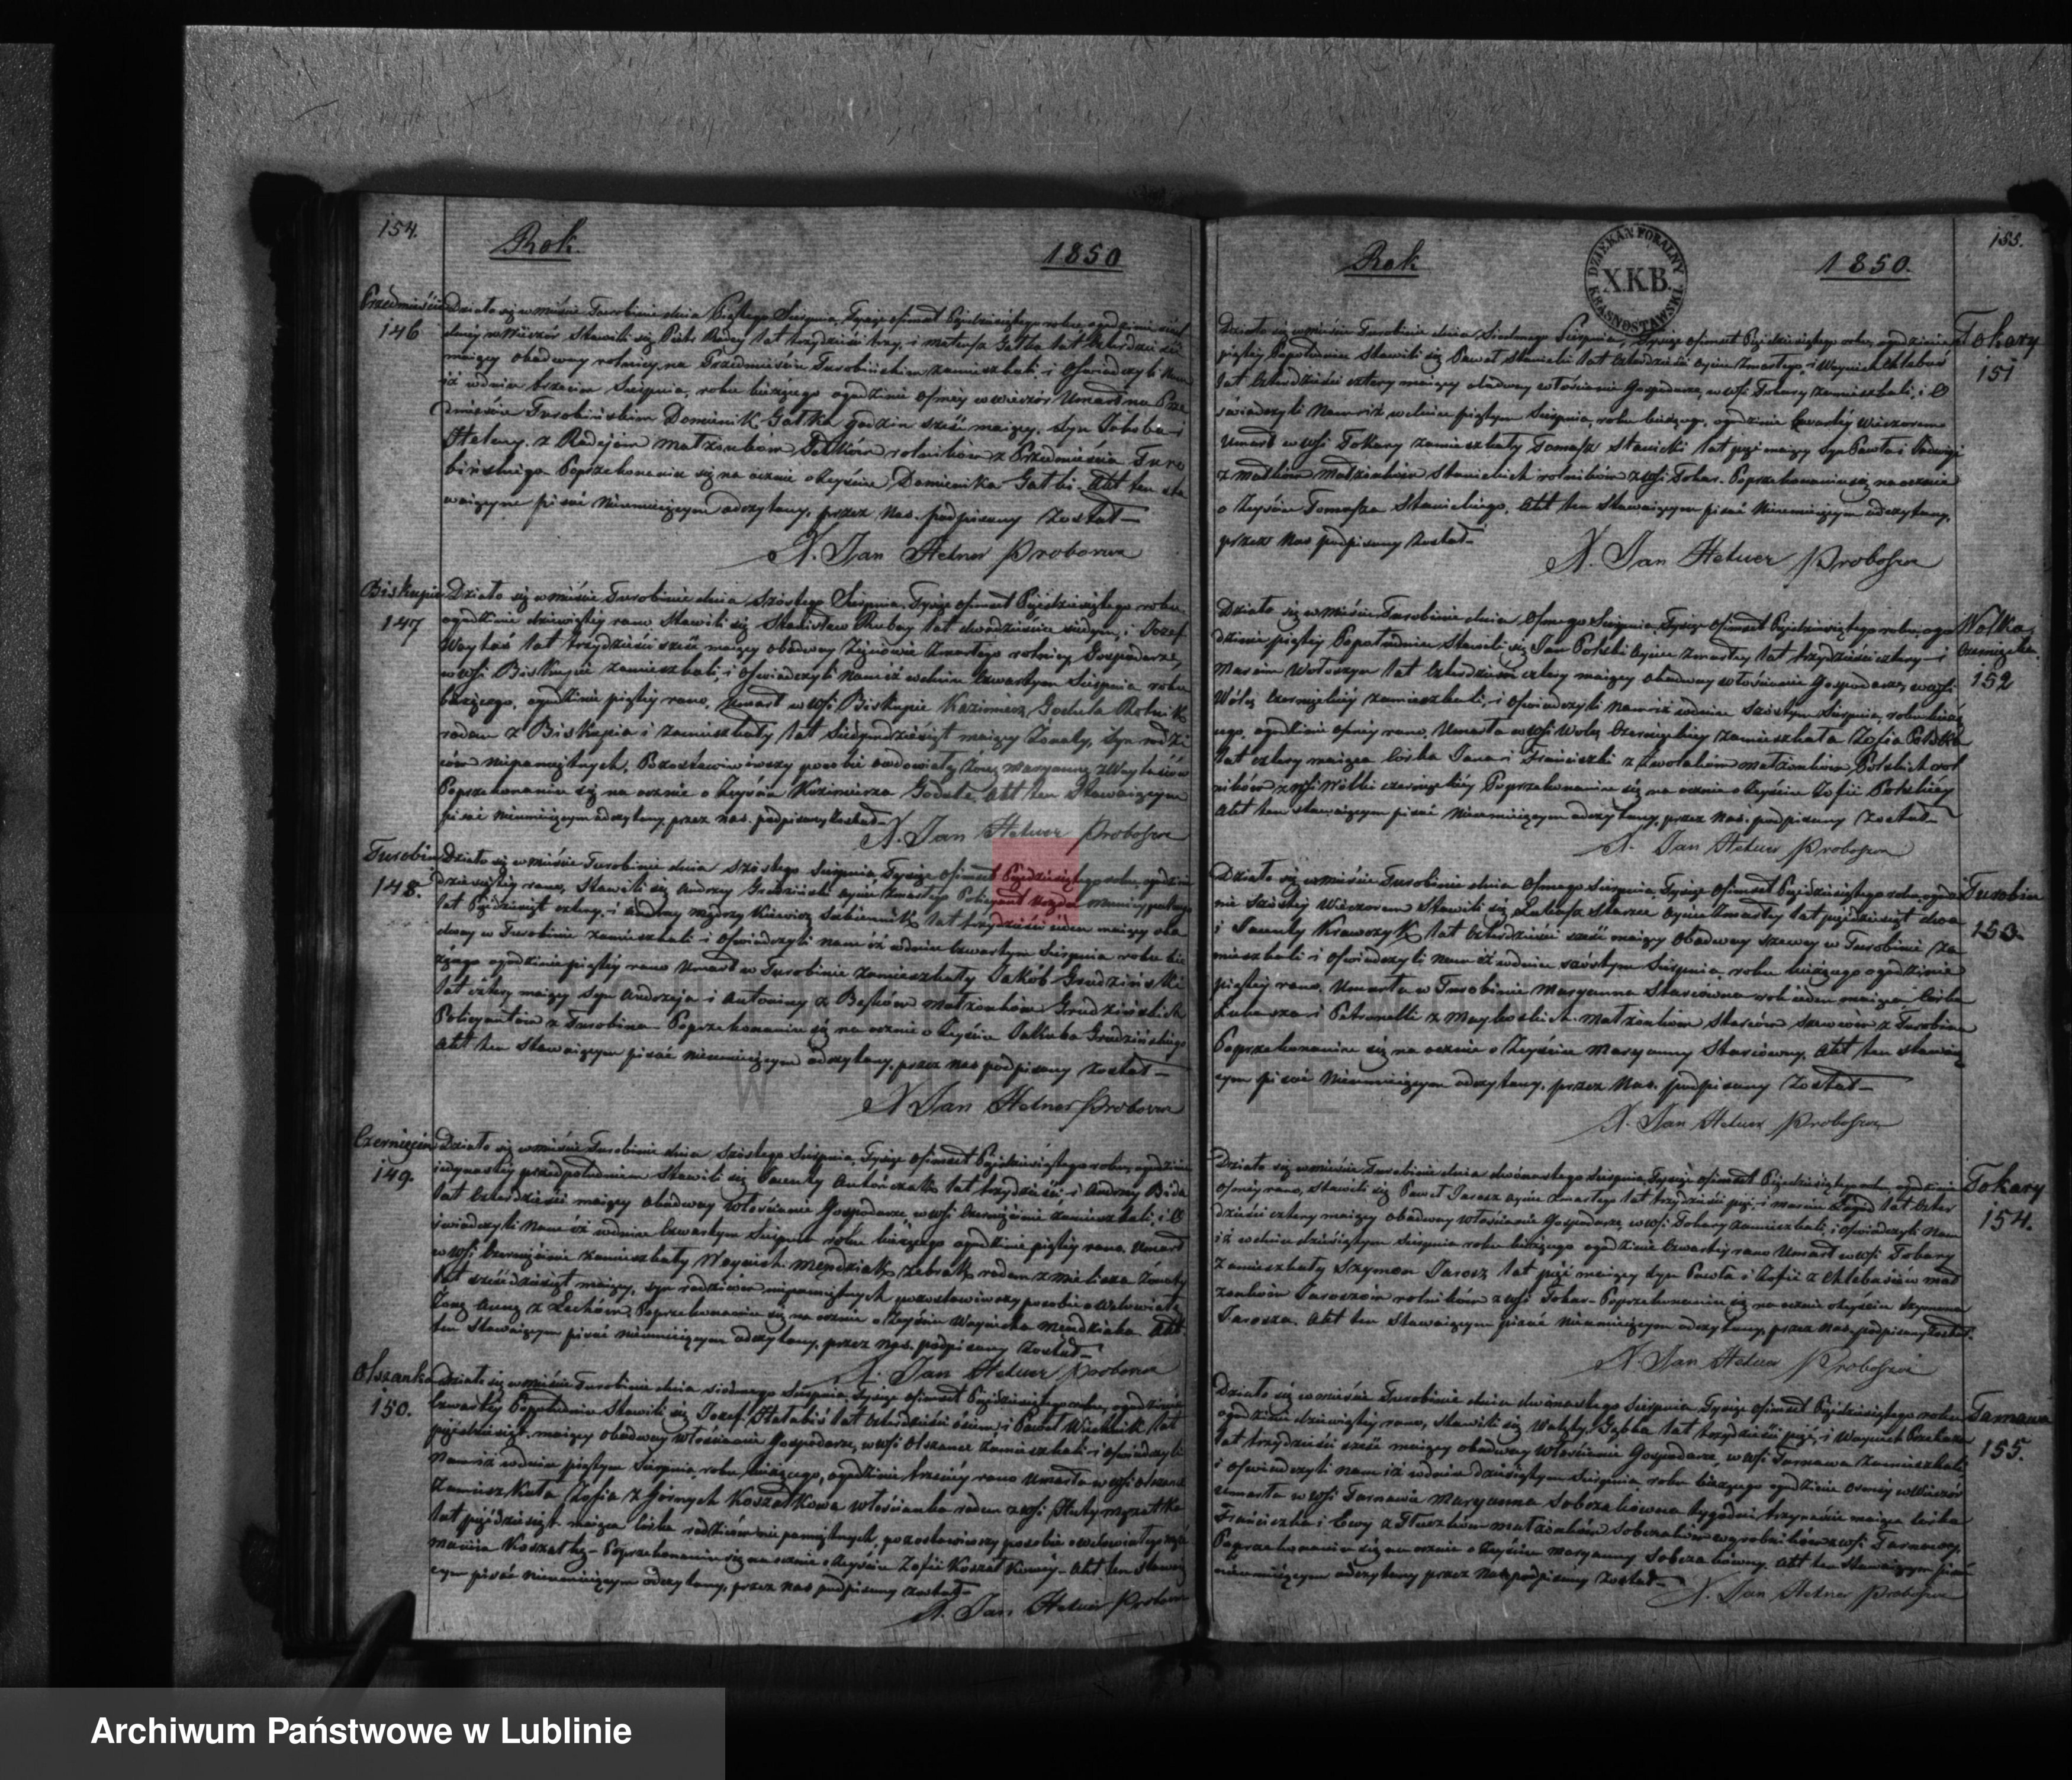 154.
Rok
1850
Przedmieście
146
Działo się w mieście Turobinie dnia Piątego Sierpnia, Tysiąc ośmset Pięćdziesiątego roku, ogodzinie
Stawili się Piotr Radey lat trzydzieści trzy, i Mateusz Gałka lat
maiący obadway rolnicy na Przedmieściu Turobińskim zamieszkali, i Oświadczyli Nam
iż w dniu trzecim Sierpnia, roku bieżącego ogodzinie osmey wwieczór Umarł na Prze
dmieściu Turobińskim Dominik Gałka godzin sześć maiący, syn Jakóba i
Heleny z Radejów małżonków Gałków rolników z Przedmieścia Turo
bińskiego Poprzekonaniu się na ocznie o Zeyściu Dominika Gałki. Akt ten sta
waiącym pisać Nieumieiącym odczytany, przez Nas podpisany Został
X. Jan Hetner Proboszcz
Biskupie
147
Działo się w mieście Turobinie dnia Szóstego Sierpnia, Tysiąc ośmset Pięćdziesiątego roku
ogodzinie dziewiątey rano Stawili się Stanisław lat dwadzieścia siedym, i Józef
Woytaś lat trzydzieści sześć maiący obadway Zięciowie Zmarłego rolnicy Gospodarze,
w wsi Biskupie zamieszkali, i Oświadczyli Nam iż w dniu Czwartym Sierpnia roku
bieżącego, ogodzinie piątey rano, Umarł w wsi Biskupie Kazimierz Godula Rolnik
rodem z Biskupia i zamieszkały lat Siedymdziesiąt maiący Żonaty, Syn rodzi
ców niepamiętnych, Pozostawiwszy posobie owdowiałą Żonę Maryannę z Woytasiów
Poprzekonaniu się na ocznie o Zeyściu Kazimierza Godule, Akt ten Stawaiącym
pisać nieumieiącym odczytany, przez nas podpisany Został
X. Jan Hetner Proboszcz
Turobin
148.
Działo się w mieście Turobinie dnia Szóstego Sierpnia, Tysiąc ośmset Pięćdziesiątego roku, ogodzinie
dziesiątey rano, Stawili się Andrzey Grudziński oyciec Zmarłego Policyant
lat Pięćdziesiąt cztery, i lat trzydzieści ieden maiący oba
dway w Turobinie zamieszkali i Oświadczyli nam iż w dniu Czwartym Sierpnia roku bie
żącego ogodzinie piątey rano Umarł w Turobinie zamieszkały Jakób Grudziński
lat cztery maiący syn Andrzeja i Antoniny z Bąków małżonków Grudzińskich
Policyantów z Turobina Poprzekonaniu się na ocznie o Zeyściu Jakuba Grudzińskiego
Akt ten Stawaiącym pisać nieumieiącym odczytany, przez nas podpisany został
X. Jan Hetner Proboszcz
Czernięcin
149.
Działo się w mieście Turobinie dnia Szóstego Sierpnia, Tysiąc ośmset Pięćdziesiątego roku, ogodzinie
iedynastey przedpołudniem Stawili się Walenty Antończak lat trzydzieści i Andrzey
lat Czterdzieści maiący obadway Włościanie Gospodarze w wsi Czernięcinie zamieszkali, i O
świadczyli Nam iż w dniu Czwartym Sierpnia roku bieżącego ogodzinie piątey rano Umarł
w wsi Czernięcinie zamieszkały Woyciech Mendziak żebrak rodem z Żonaty
lat sześćdziesiąt maiący, syn rodziców niepamiętnych pozostawiwszy posobie owdowiałą
Żonę Annę z Lechów, Poprzekonaniu się na ocznie o Zeyściu Woyciecha Mendziaka. Akt
ten Stawaiącym pisać nieumieiącym odczytany, przez nas podpisany Został
X. Jan Hetner Proboszcz
Olszanka
150.
Działo się w mieście Turobinie dnia siódmego Sierpnia, Tysiąc ośmset Pięćdziesiątego roku, ogodzinie
Czwartey Popołudniu Stawili się Józef lat Czterdzieści osiem, i Paweł lat
pięćdziesiąt maiący obadway Włościanie Gospodarze, w wsi Olszance zamieszkali i Oświadczyli
Nam iż w dniu piątym Sierpnia roku bieżącego, ogodzinie trzeciey rano Umarła w wsi
Zamieszkała Zofia z Górnych Koszałkowa włościanka rodem z wsi Huty
lat pięćdziesiąt maiąca córka rodziców niepamiętnych, pozostawiwszy posobie owdowiałego
Koszałkę Poprzekonaniu się na ocznie o Zeyściu Zofii Koszałkowey Akt ten
cym pisać nieumieiącym odczytany, przez nas podpisany został
X. Jan Hetner Proboszcz
155.
Rok
1850.
DZIEKAN FORALNY KRASNOSTAWSKI.
X.K.B.
Tokary
151
Działo się w mieście Turobinie dnia Siódmego Sierpnia, Tysiąc ośmset Pięćdziesiątego roku, ogodzinie
piątey Popołudniu Stawili się Paweł Stanicki lat Czterdzieści oyciec Zmarłego, i Woyciech Chlebaś
lat Czterdzieści cztery maiący obadway włościanie Gospodarze, w wsi Tokary zamieszkali, i O
świadczyli Nam iż w dniu piątym Sierpnia, roku bieżącego, ogodzinie Czwartey Wieczorem
Umarł w wsi Tokary zamieszkały Tomasz Stanicki lat pięć maiący Syn Pawła i Jadwigi
z małżonków Stanickich rolników z wsi Tokar. Poprzekonaniu się na ocznie
o Zeyściu Tomasza Stanickiego, Akt ten Stawaiącym pisać Nieumieiącym odczytany,
przez Nas podpisany Został
X. Jan Hetner Proboszcz
Wólka
152
Działo się w mieście Turobinie dnia Ósmego Sierpnia Tysiąc Ośmset Pięćdziesiątego roku, ogo
dzinie piątey Popołudniu Stawili się Jan Polski Oyciec Zmarłey lat trzydzieści cztery i
Marcin Wołoszyn lat Czterdzieści cztery maiący obadway włościanie Gospodarze, w wsi
zamieszkali, i Oświadczyli Nam iż w dniu Szóstym Sierpnia, roku bieżą
cego, ogodzinie osmey rano, Umarła w wsi zamieszkała Zofia Polska
lat cztery maiąca córka Jana i Franciszki z małżonków Polskich rol
ników z wsi Poprzekonaniu się na ocznie o Zeyściu Zofii Polskiey
Akt ten stawaiącym pisać Nieumieiącym odczytany, przez Nas podpisany Został
X. Jan Hetner Proboszcz
Turobin
153.
Działo się w mieście Turobinie dnia Ósmego Sierpnia, Tysiąc Ośmset Pięćdziesiątego roku, ogodzi
nie Szóstey Wieczorem Stawili się Łukasz Starzec oyciec Zmarłey lat pięćdziesiąt dwa
i Walenty Krawczyk lat Czterdzieści sześć maiący Obadway szewcy w Turobinie za
mieszkali i Oświadczyli Nam iż w dniu szóstym Sierpnia roku bieżącego ogodzinie
piątey rano, Umarła w Turobinie Maryanna Starcówna rok ieden maiąca Córka
Łukasza i Petronelli z małżonków Starców szewców z Turobina
Poprzekonaniu się na ocznie o Zeyściu Maryanny Starcówny, Akt ten stawaią
cym pisać Nieumieiącym odczytany, przez Nas podpisany Został
X. Jan Hetner Proboszcz
Tokary
154.
Działo się w mieście Turobinie dnia dwónastego Sierpnia, Tysiąc ośmset Pięćdziesiątego roku, ogodzinie
osmey rano, Stawili się Paweł Jarosz oyciec Zmarłego lat trzydzieści pięć i Marcin lat Czter
dzieści cztery maiący obadway włościanie Gospodarze, w wsi Tokary zamieszkali, i Oświadczyli Nam
iż w dniu dziesiątym Sierpnia roku bieżącego ogodzinie Czwartey rano Umarł w wsi Tokary
zamieszkały Szymon Jarosz lat pięć maiący Syn Pawła i Zofii z Chlebasiów mał
żonków Jaroszów rolników z wsi Tokar Poprzekonaniu się na ocznie o Zeyściu Szymona
Jarosza. Akt ten Stawaiącym pisać Nieumieiącym odczytany, przez Nas podpisany Został.
X. Jan Hetner Proboszcz
Tarnawa
155.
Działo się w mieście Turobinie dnia dwónastego Sierpnia Tysiąc ośmset Pięćdziesiątego roku
ogodzinie dziewiątey rano, Stawili się Walenty Gąbka lat trzydzieści pięć, i Woyciech
lat trzydzieści sześć maiący obadway Włościanie Gospodarze, w wsi Tarnawa Zamieszkali,
i Oświadczyli nam iż w dniu dziesiątym Sierpnia roku bieżącego ogodzinie osmey w Wieczór
umarła w wsi Tarnawie Maryanna Sobczakówna tygodni trzynaście maiąca Córka
Franciszka i Ewy z małżonków Sobczaków wyrobników z wsi Tarnawy.
Poprzekonaniu się na ocznie o Zeyściu Maryanny Sobczakówny. Akt ten Stawaiącym pisać
nieumieiącym odczytany przez Nas podpisany Został
X. Jan Hetner Proboszcz
Archiwum Państwowe w Lublinie